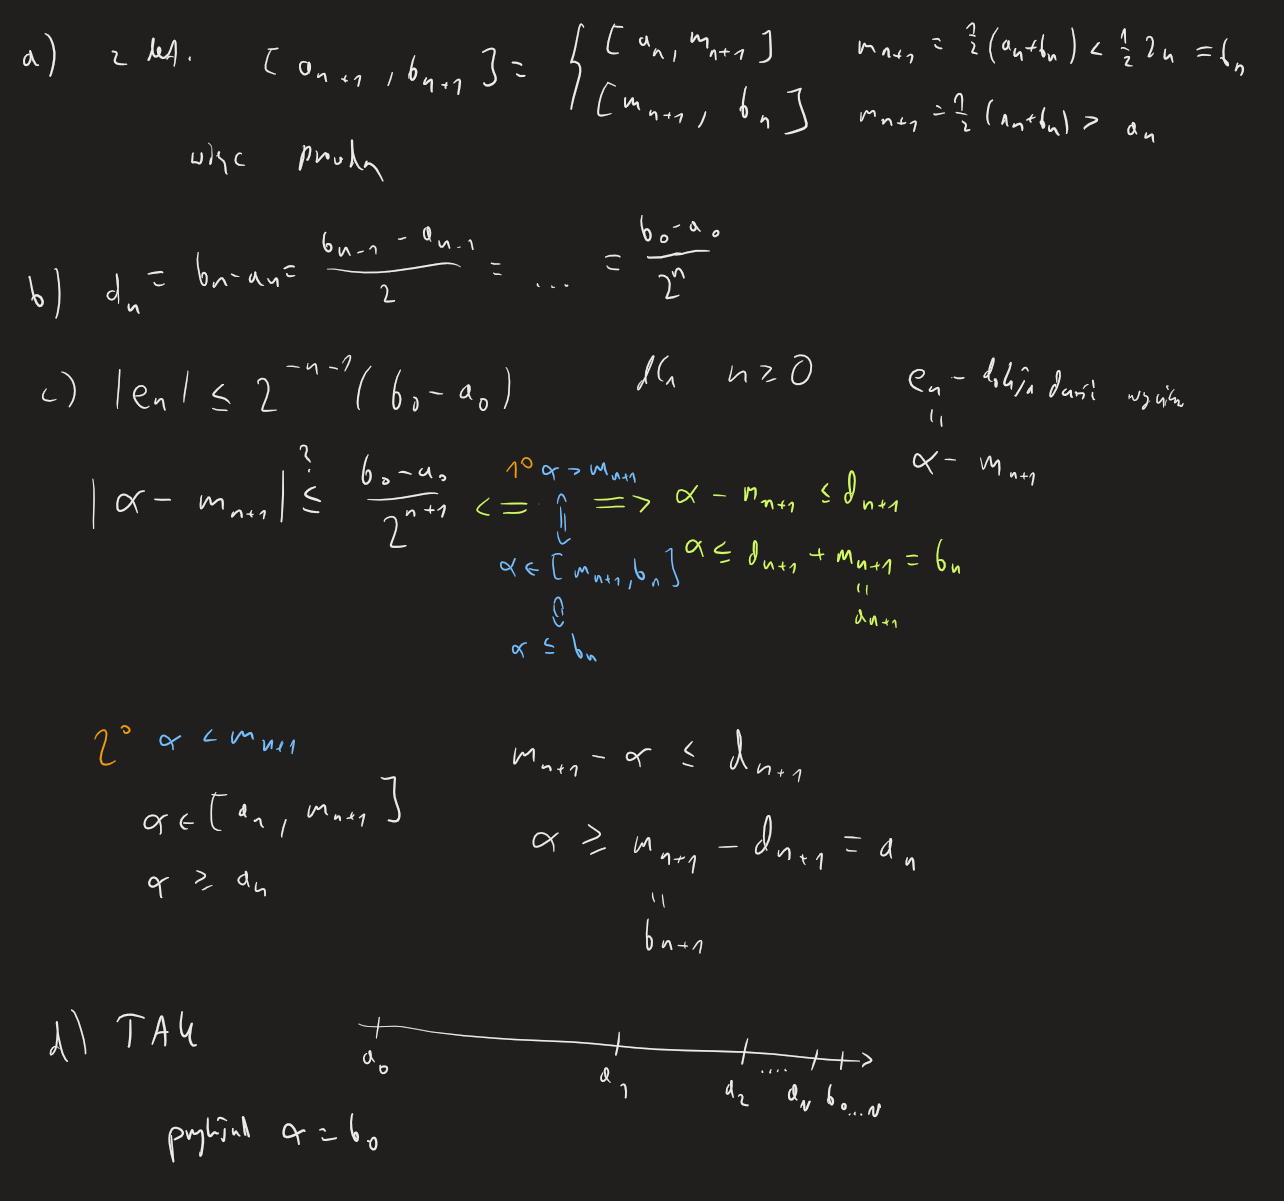 a) z def. [a_{n+1}, b_{n+1}] = { [a_n, m_{n+1}] m_{n+1} = 1/2 (a_n+b_n) < 1/2 2_n = b_n
[m_{n+1}, b_n] m_{n+1} = 1/2 (a_n+b_n) > a_n
więc prawda
b) d_n = b_n - a_n = (b_{n-1} - a_{n-1})/2 = ... = (b_0 - a_0)/2^n
c) |e_n| ≤ 2^{-n-1} (b_0 - a_0) dla n ≥ 0 e_n -
"
α - m_{n+1}
|α - m_{n+1}| ≤^? (b_0 - a_0)/2^{n+1} <= 1° α > m_{n+1} => α - m_{n+1} ≤ d_{n+1}
α ∈ [m_{n+1}, b_n] α ≤ d_{n+1} + m_{n+1} = b_n
"
a_{n+1}
α ≤ b_n
2° α < m_{n+1} m_{n+1} - α ≤ d_{n+1}
α ∈ [a_n, m_{n+1}] α ≥ m_{n+1} - d_{n+1} = a_n
α ≥ a_n "
b_{n+1}
d) TAK
a_0 a_1 a_2 .... a_N b_{0...N}
przykład α = b_0